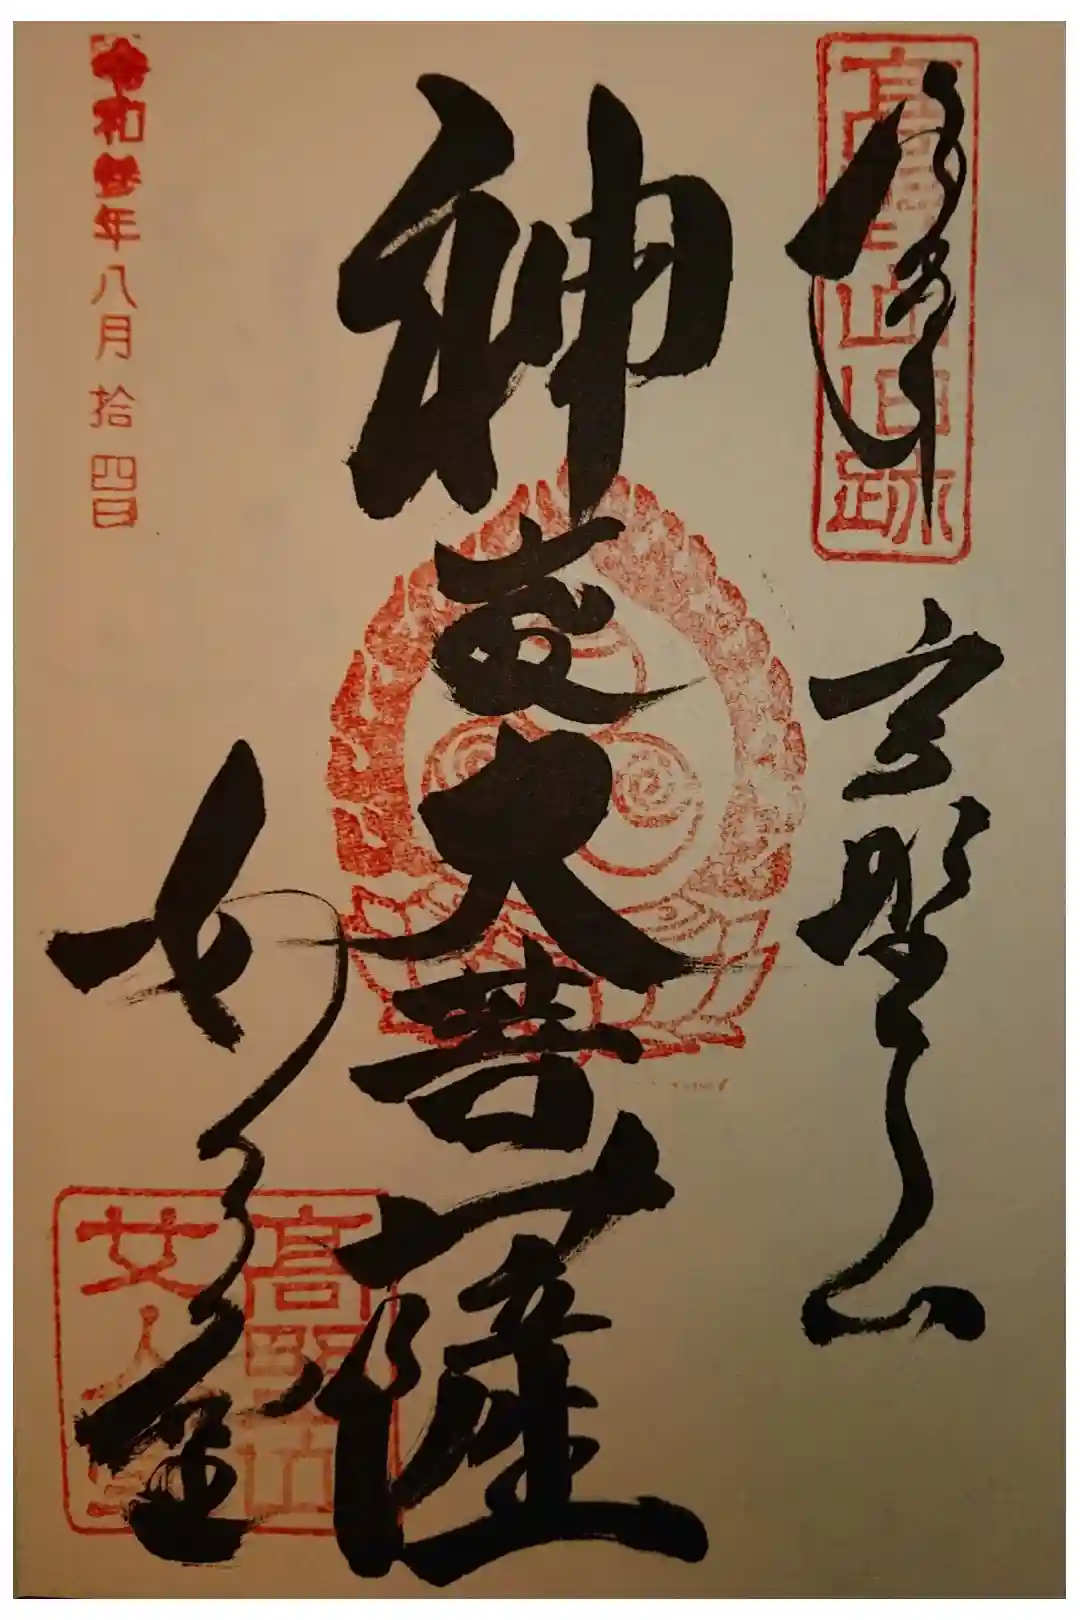 奉拝
高野山旧跡
高野山
神変大菩薩
女人堂
高野山
女人堂
令和参年八月拾四日